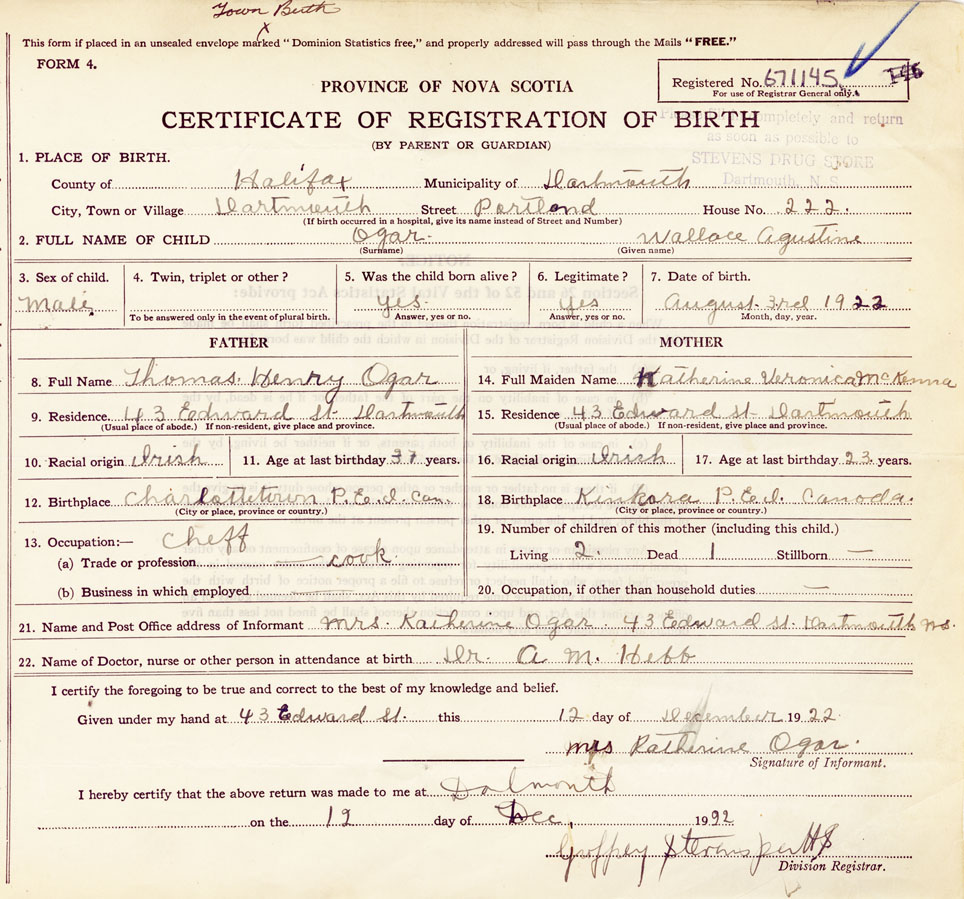 Town Birth
This form if placed in an unsealed envelope marked "Dominion Statistics free," and properly addressed will pass through the Mails "FREE."
FORM 4.
Registered No. 671145
For use of Registrar General only.
PROVINCE OF NOVA SCOTIA
completely and return
CERTIFICATE OF REGISTRATION OF BIRTH
as soon as possible to
(BY PARENT OR GUARDIAN)
STEVENS DRUG STORE
Dartmouth, N. S.
1. PLACE OF BIRTH.
County of Halifax Municipality of Dartmouth
City, Town or Village Dartmouth Street Portland House No. 222.
(If birth occurred in a hospital, give its name instead of Street and Number)
2. FULL NAME OF CHILD Ogar. Wallace Agustine
(Surname) (Given name)
3. Sex of child. 4. Twin, triplet or other? 5. Was the child born alive? 6. Legitimate? 7. Date of birth.
Male. yes. yes August 3rd 1922
To be answered only in the event of plural birth. Answer, yes or no. Answer, yes or no. Month, day, year.
FATHER MOTHER
8. Full Name Thomas Henry Ogar 14. Full Maiden Name Katherine Veronica McKenna
9. Residence. 43 Eedward St. Dartmouth 15. Residence 43 Edward St. Dartmouth
(Usual place of abode.) If non-resident, give place and province. (Usual place of abode.) If non-resident, give place and province.
10. Racial origin Irish 11. Age at last birthday 37 years. 16. Racial origin Irish 17. Age at last birthday 23 years.
12. Birthplace Charlottetown P.E.I. Can. 18. Birthplace Kinkora P.E.I. Canada.
(City or place, province or country.) (City or place, province or country.)
13. Occupation:— Cheff 19. Number of children of this mother (including this child.)
(a) Trade or profession — cook Living 2. Dead 1 Stillborn —
(b) Business in which employed — 20. Occupation, if other than household duties —
21. Name and Post Office address of Informant Mrs. Katherine Ogar. 43 Eedward St. Dartmouth N.S.
22. Name of Doctor, nurse or other person in attendance at birth Dr. A M. Hebb
I certify the foregoing to be true and correct to the best of my knowledge and belief.
Given under my hand at 43 Edward St. this 12 day of December 1922
Mrs Katherine Ogar.
Signature of Informant.
I hereby certify that the above return was made to me at Dalmonth
on the 12 day of Dec, 1992
Division Registrar.